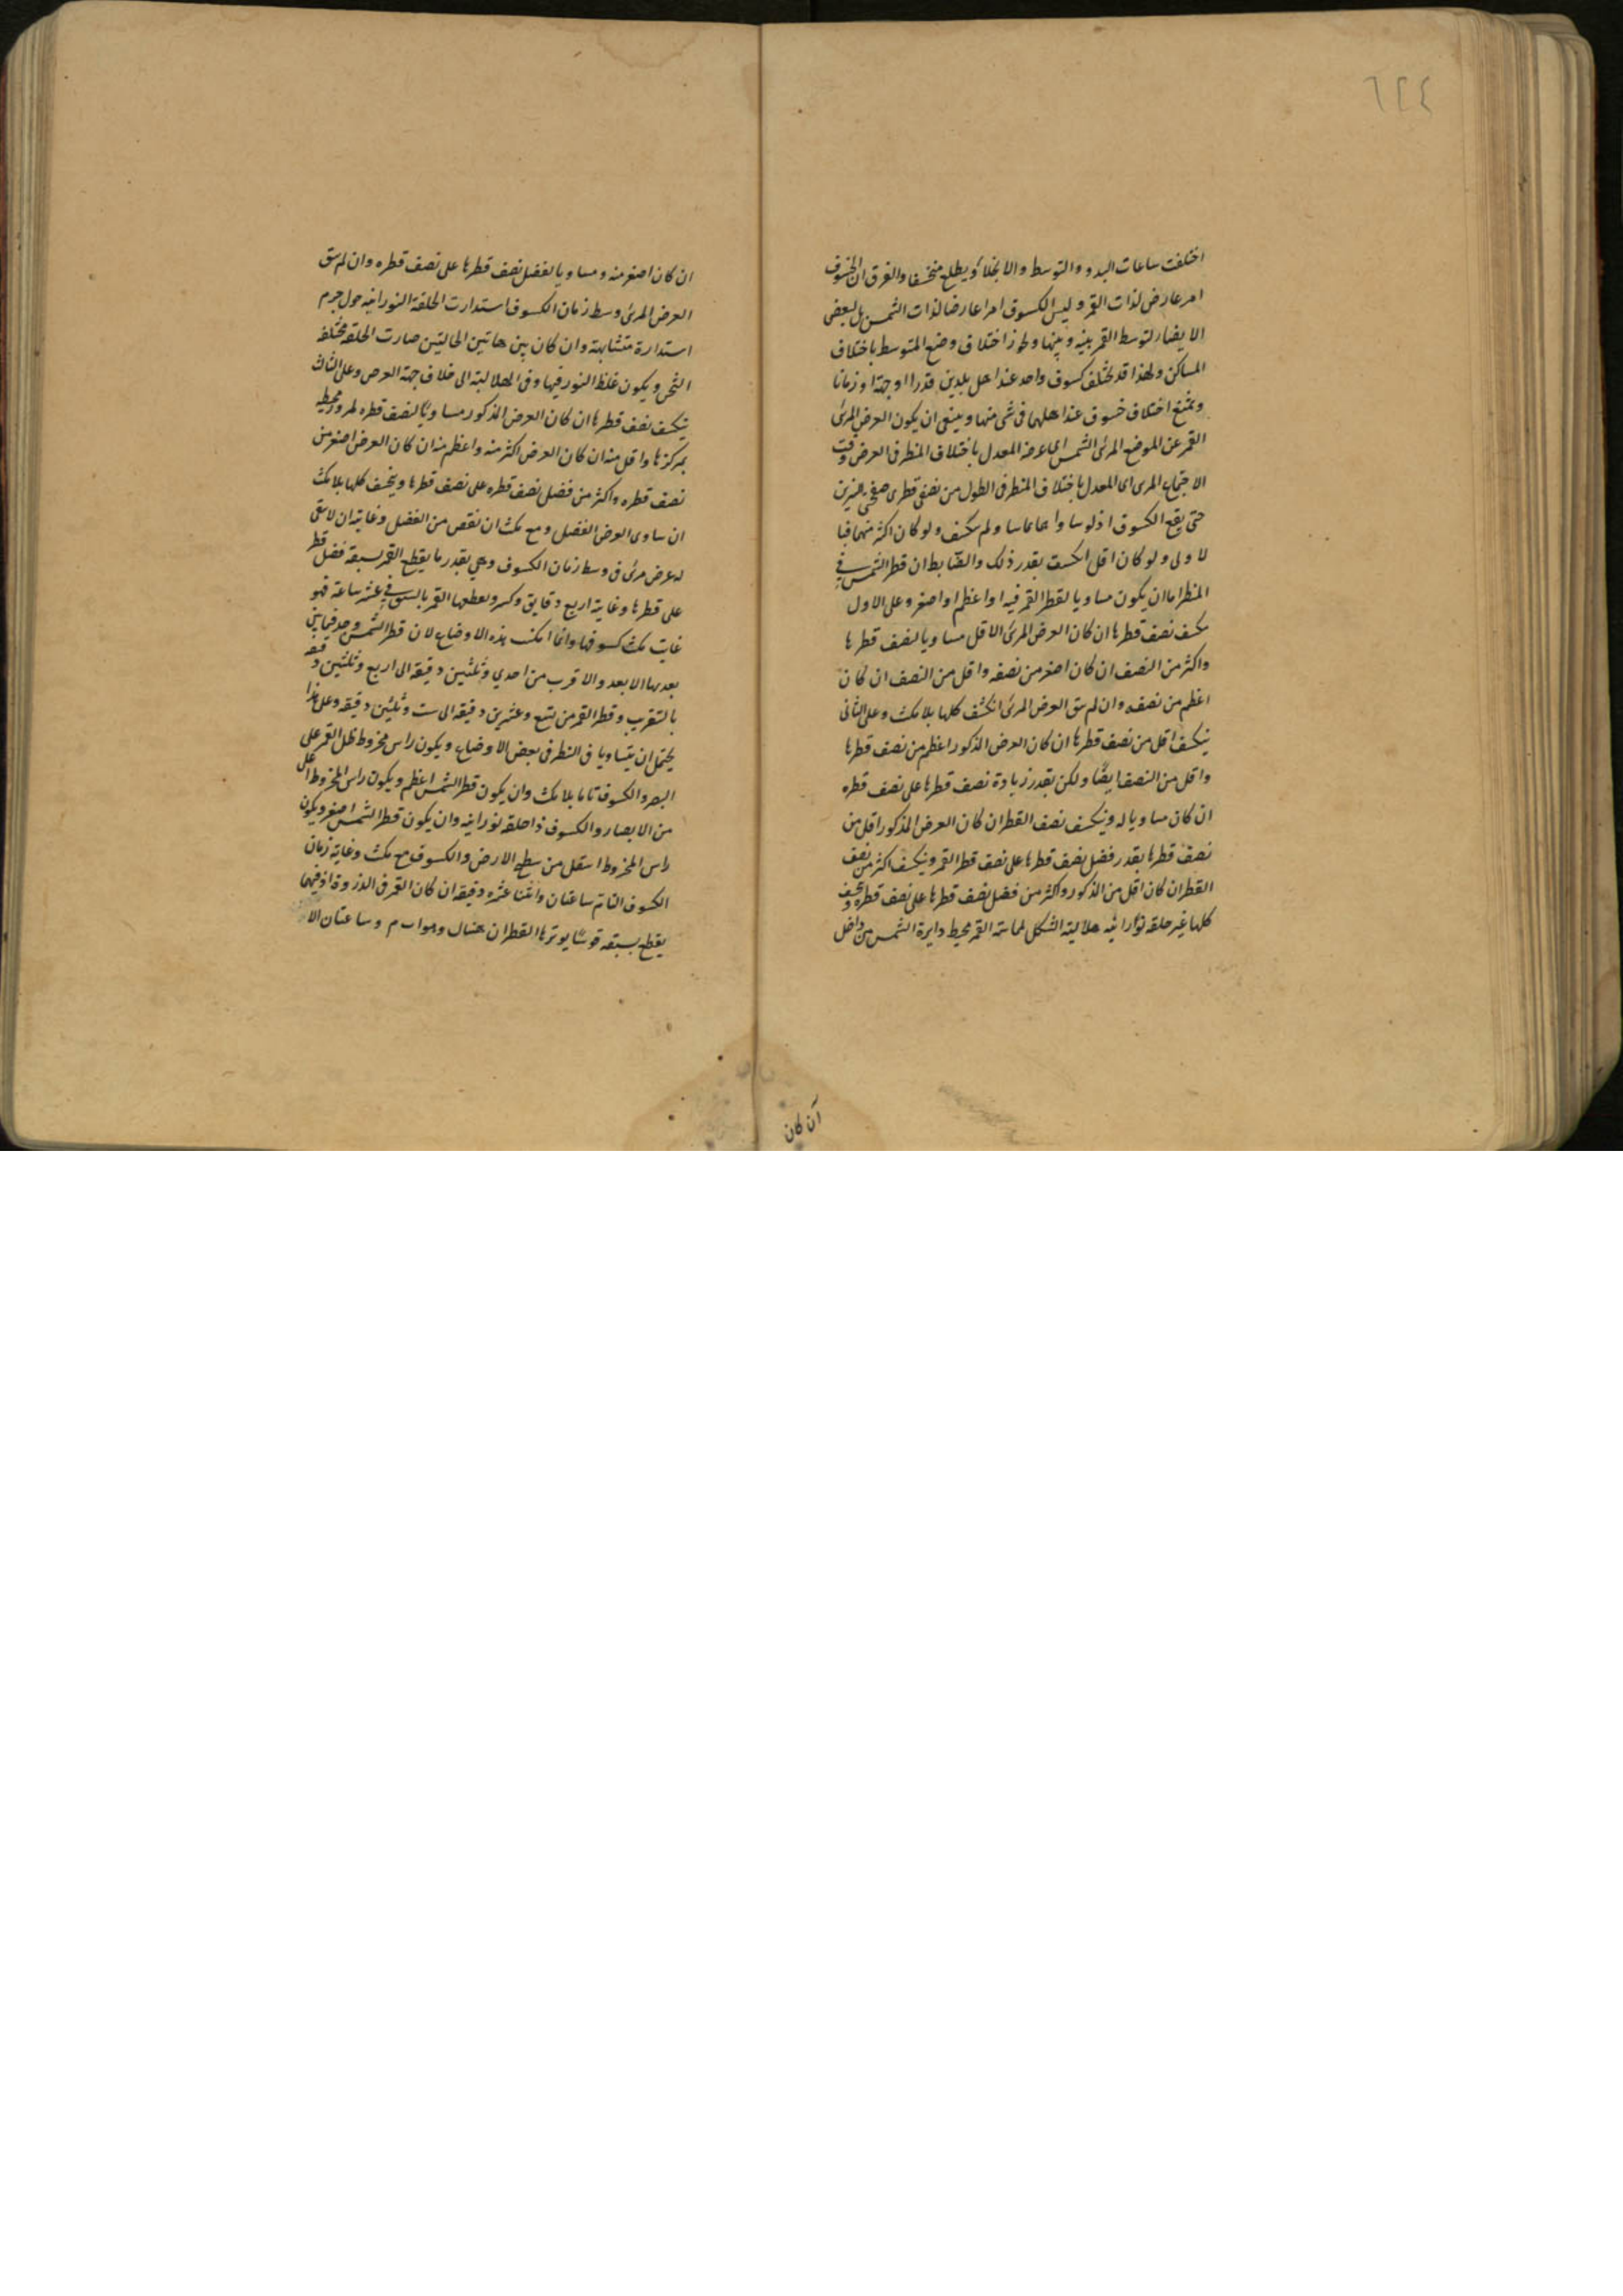 ٦٢٤
اختلفت ساعات البدو والتوسط والانجلاء ويطلع منخسفا والفرق ان الخسوف
امر عارض لذات القمر وليس الكسوف امرا عارضا لذات الشمس بل لبعض
الابصار لتوسط القمر بينه وبينها ولجواز اختلاف وضع المتوسط باختلاف
المساكن ولهذا قد يختلف كسوف واحد عند اهل بلدين قدرا او جهة او زمانا
ويمتنع اختلاف خسوف عند اهلهما فى شى منها وينبغى ان يكون العرض المرئ
القمر عن الموضع المرئ الشمس اى ما عرضه المعدل باختلاف المنظر فى العرض وقت
الاجتماع المرى اى المعدل باختلاف المنظر فى الطول من نصفى قطرى صفحتى النيرين
حتى يقع الكسوف اذ لو ساواهما تماسا ولم تنكسف ولو كان اكثر منهما فبا
لاولى ولو كان اقل انكسفت بقدر ذلك والضابط ان قطر الشمس فى
المنظر اما ان يكون مساويا لقطر القمر فيه او اعظم او اصغر وعلى الاول
تنكسف نصف قطرها ان كان العرض المرئ الاقل مساويا لنصف قطرها
واكثر من النصف ان كان اصغر من نصفه واقل من النصف ان كان
اعظم من نصفه وان لم يبق العرض المرئ انكسف كلها بلا مكث وعلى الثانى
ينكسف اقل من نصف قطرها ان كان العرض المذكور اعظم من نصف قطرها
واقل من النصف ايضا ولكن بقدر زيادة نصف قطرها على نصف قطره
ان كان مساويا له وينكسف نصف القطر ان كان العرض المذكور اقل من
نصف قطرها بقدر فضل نصف قطرها على نصف قطر القمر وينكسف اكثر من نصف
القطر ان كان اقل من المذكور واكثر من فضل نصف قطرها على نصف قطره
كلها غير حلقة نورانية هلالية الشكل لمماسة القمر محيط دايرة الشمس من داخل
ان كان
ان كان اصغر منه ومساويا لفضل نصف قطرها على نصف قطره وان لم يبق
العرض المرئ وسط زمان الكسوف استدارت الحلقة النورانيه حول جرم
استدارة متشابهة وان كان بين هاتين الحالتين صارت الحلقة مختلفه
الثخن ويكون غلظ النور فيها وفى الهلالية الى خلاف جهة العرض وعلى الثالث
ينكسف نصف قطرها ان كان العرض المذكور مساويا لنصف قطره لمرور محيطه
بمركزها واقل منه ان كان العرض اكثر منه واعظم منه ان كان العرض اصغر من
نصف قطره واكثر من فضل نصف قطره على نصف قطرها وينخسف كلها بلا مكث
ان ساوى العرض الفضل ومع مكث ان نقص من الفضل وغايته ان لا يبقى
له عرض مرئ فى وسط زمان الكسوف وهى بقدر ما يقطع القمر بسبقه فضل قطر
على قطرها وغايته اربع دقايق وكسر ويقطعها القمر بالسبق فى عشر ساعة فهو
غاية مكث كسوفها وانما امكنت هذه الاوضاع لان قطر الشمس وجد فيما بين
بعديها الابعد والاقرب من احدي وثلثين دقيقة الى اربع وثلثين دقيقه
بالتقريب وقطر القمر من تسع وعشرين دقيقة الى ست وثلثين دقيقه وعلى هذا
يحتمل ان يتساويا فى المنظر فى بعض الاوضاع ويكون راس مخروط ظل القمر على
البصر والكسوف تاما بلا مكث وان يكون قطر الشمس اعظم ويكون راس المخروط اعلى
من الابصار والكسوف ذا حلقة نورانيه وان يكون قطر الشمس اصغر ويكون
راس المخروط اسفل من سطح الارض والكسوف مع مكث وغاية زمان
الكسوف التام ساعتان واثنتا عشرة دقيقة ان كان القمر فى الذروة اذ فيها
يقطع بسبقه قوسا يوترها القطران وساعتان الا